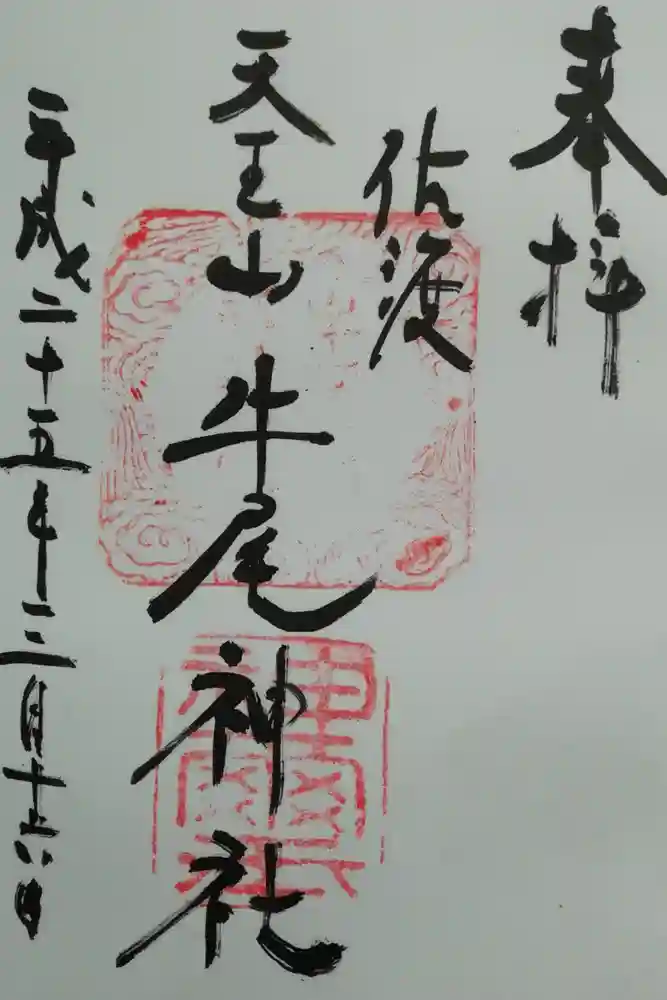 奉拝
佐渡
天王山 牛尾神社
平成二十五年三月十六日